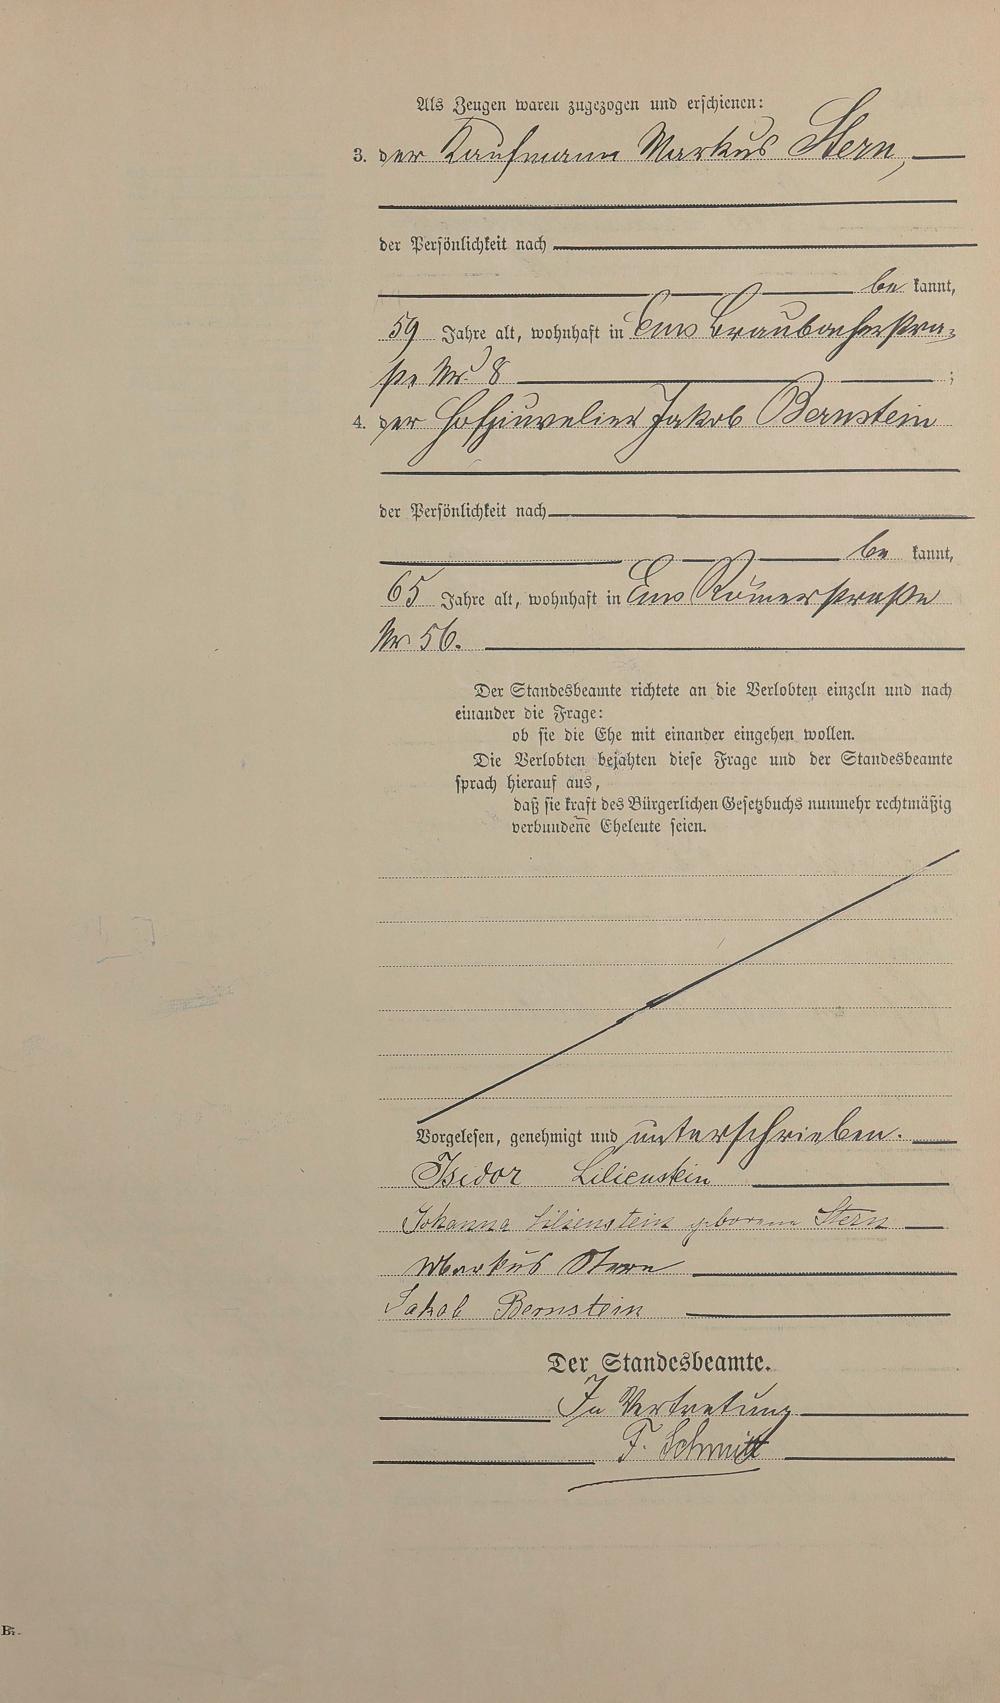 Als Zeugen waren zugezogen und erschienen:
3. der Kaufmann Markus Stern,
der Persönlichkeit nach
be kannt,
59 Jahre alt, wohnhaft in Ems Braubacherstra-
ße Nr. 8 ;
4. der Hofjuwelier Jakob Bernstein
der Persönlichkeit nach
be kannt,
65 Jahre alt, wohnhaft in Ems Römerstraße
Nr. 56.
Der Standesbeamte richtete an die Verlobten einzeln und nach
einander die Frage:
ob sie die Ehe mit einander eingehen wollen.
Die Verlobten bejahten diese Frage und der Standesbeamte
sprach hierauf aus,
daß sie kraft des Bürgerlichen Gesetzbuchs nunmehr rechtmäßig
verbundene Eheleute seien.
Vorgelesen, genehmigt und unterschrieben.
Isidor Lilienstein
Johanna Lilienstein geborene Stern
Markus Stern
Jakob Bernstein
Der Standesbeamte.
In Vertretung
F. Schmitt
B.